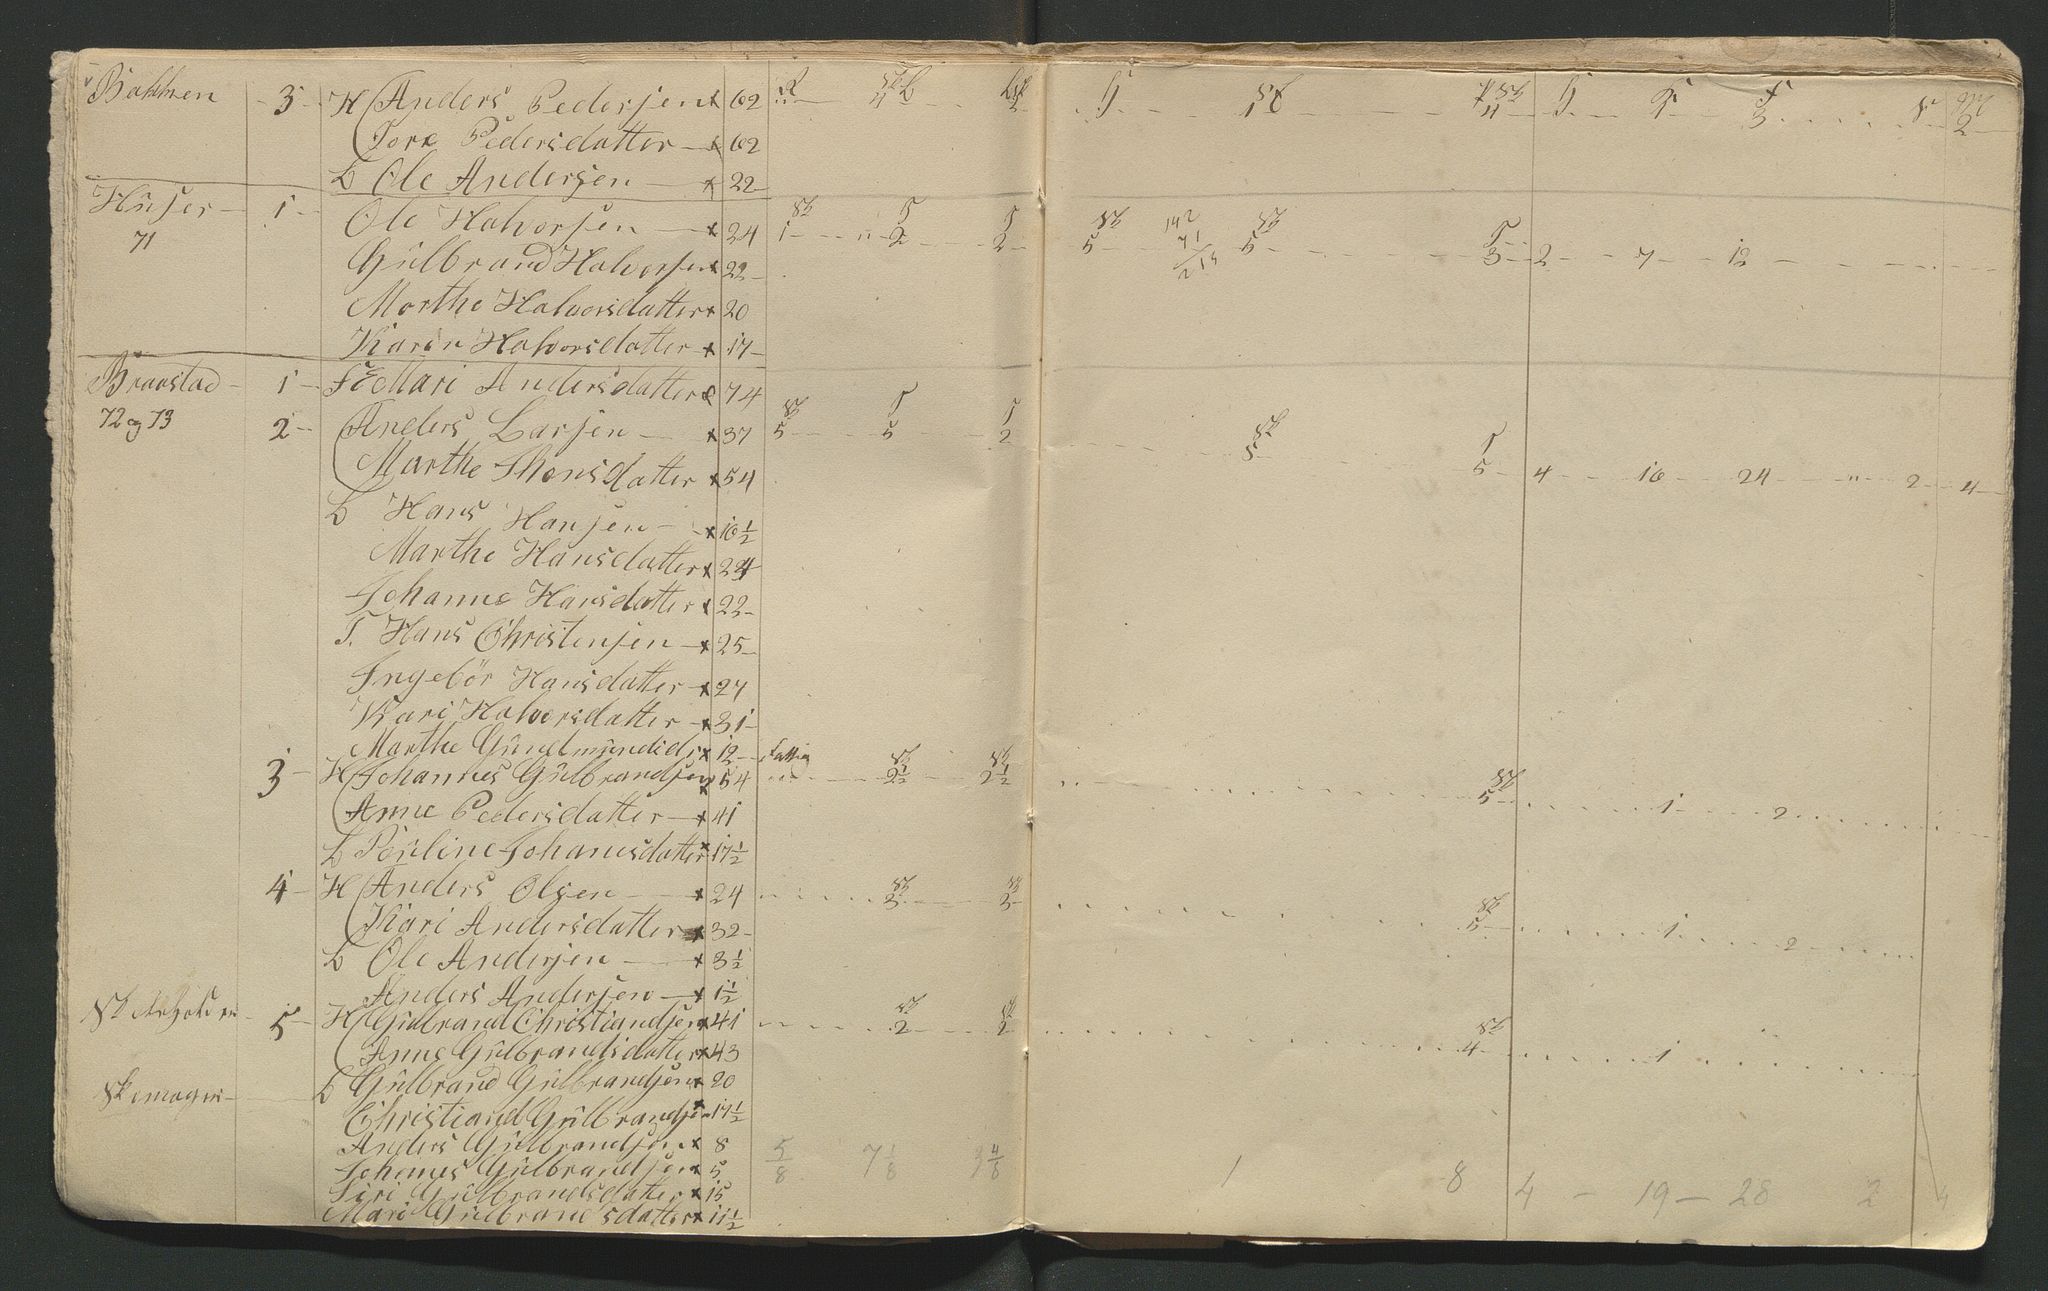 Bakken - 3 - H Anders Pedersen x 62
Tore Pedersdatter - x 62
L Ole Andersen - x 22 -
Huser - 1 - Ole Halvorsen - x 24 1 2 2 5 142 5 3 2 7 12
71 Gulbrand Halvorsen x 22 - 71
Marthe Halvorsdatter x 20 213
Karen Halvorsdatter x 17 -
Braastad - 1 - Mari Andersdatter x 74
72 og 73 2 - Anders Larsen - x 37 5 5 2 5 5 4 16 24 " 2 4
Marthe Thonsdatter x 54
L Hans Hansen - x 16½
Marthe Hansdatter x 24
Johanne Hansdatter x 22 -
T. Hans Christensen - x 25 -
Ingebør Hansdatter - x 27
Kari Halvorsdatter - x 31 -
Marthe x 12 - Fattig
3 - H Johannes Gulbrandsen x 54 2½ 2½ 5 1 2
Anne Pedersdatter - x 41
L Pauline Johanesdatter x 17½
4 - H Anders Olsen - x 24 3 3 5 1 2
Kari Andersdatter x 32 -
L Ole Andersen - x 3½
Anders Andersen - x 1½
5 - H Gulbrand Christiandsen x 41 2 2 4 1
Anne Gulbrandsdatter x 43
L Gulbrand Gulbrandsen x 20
Christiand Gulbrandsen x 17½
Anders Gulbrandsen x 8 5/8 7 1/8 4/8
Johanes Gulbrandsen x 5 1 8 4 - 19 - 28 2 4
Siri Gulbrandsdatter x 15
Mari Gulbrandsdatter x 11½